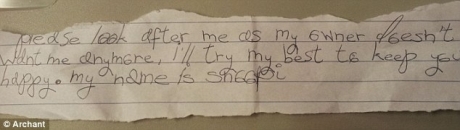 please look after me as my owner doesn't
want me anymore, I'll try my best to keep you
happy. my name is
© Archant